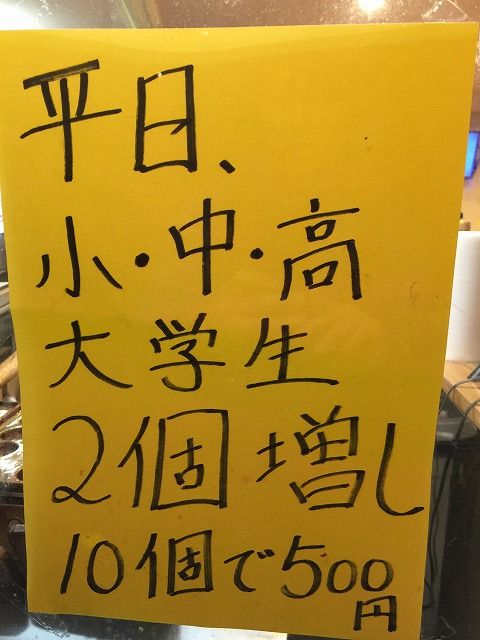 平日、
小・中・高
大学生
2個増し
10個で500
円